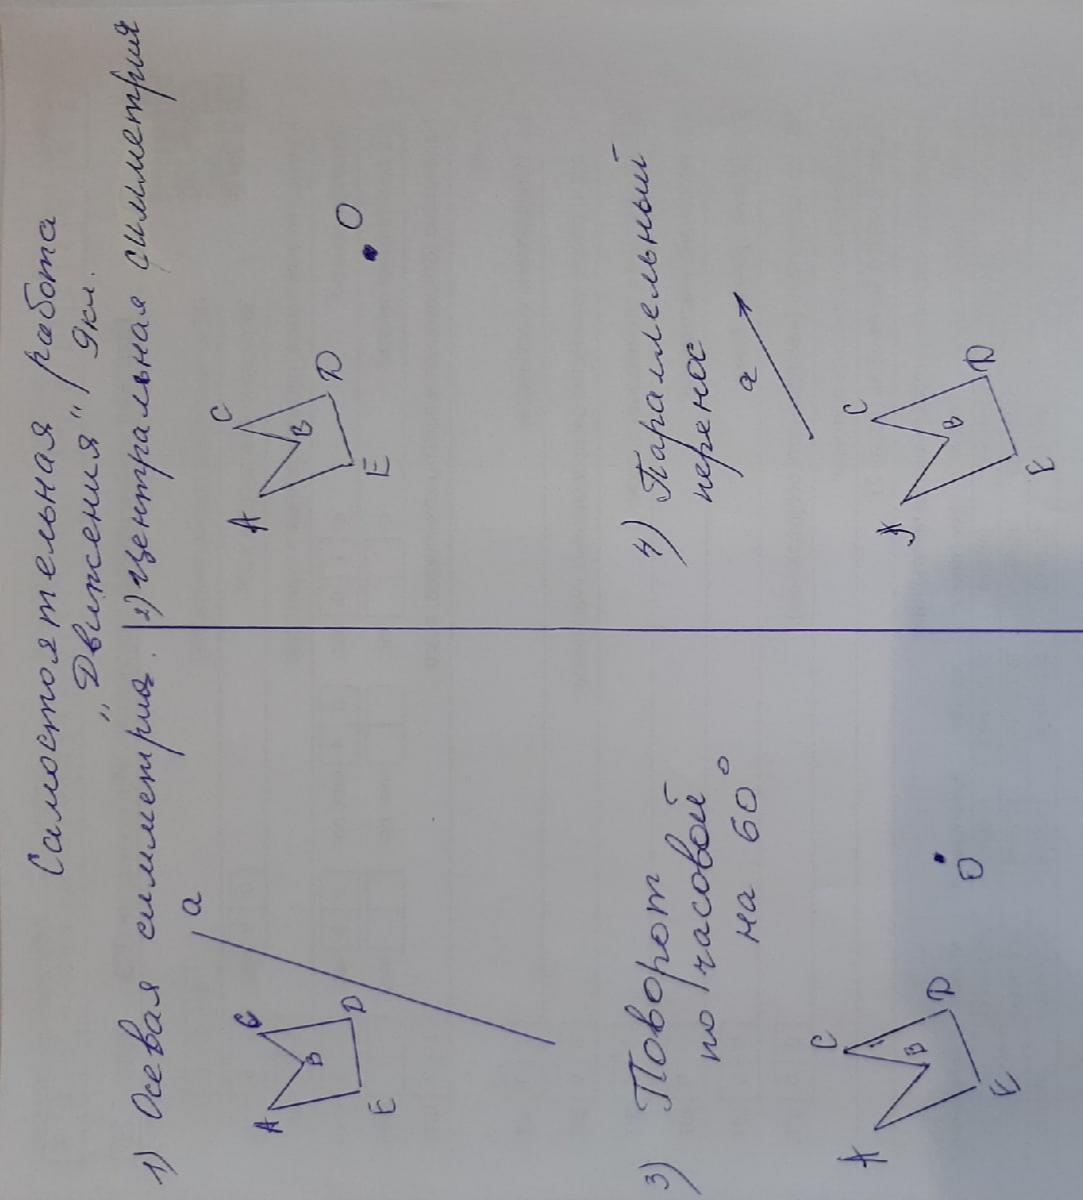 Самостоятельная работа
„Движения“ 9кл.
1) Осевая симметрия.
a
A
C
B
D
E
2) Центральная симметрия
A
C
B
D
E
O
3) Поворот
по часовой
на 60°
A
C
B
D
E
O
4) Параллельный
перенос
a
A
C
B
D
E